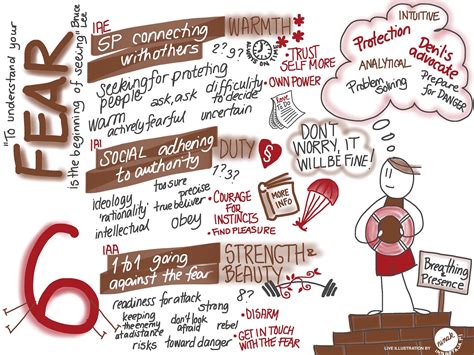 "To understand your
FEAR
is the beginning of seeing"
Bruce
Lee
6
IAE
SP connecting
with others
WARMTH
ALWAYS
ON TIME
seeking for proteting
people
ask, ask
warm
actively fearful
???
difficulty
to decide
uncertain
• TRUST
SELF MORE
• OWN POWER
Love
IAI
SOCIAL adhering
to authority
DUTY
§
ideology
"rationality"
intellectual
too sure
precise
true believer
obey
???
• COURAGE
FOR
INSTINCTS
• FIND PLEASURE
MORE
INFO
IAA
1 to 1 going
against the fear
STRENGTH &
BEAUTY
readiness for attack
keeping
the enemy
at a distance
risks
strong
don't look
afraid
rebel
toward danger
• DISARM
• GET IN TOUCH
WITH THE FEAR
INTUITIVE
Protection
ANALYTICAL
Problem
Solving
Devil's
advocate
Prepare
for
DANGER
DON'T
WORRY, IT
WILL BE FINE!
Breathing
Presence
LIVE ILLUSTRATION BY